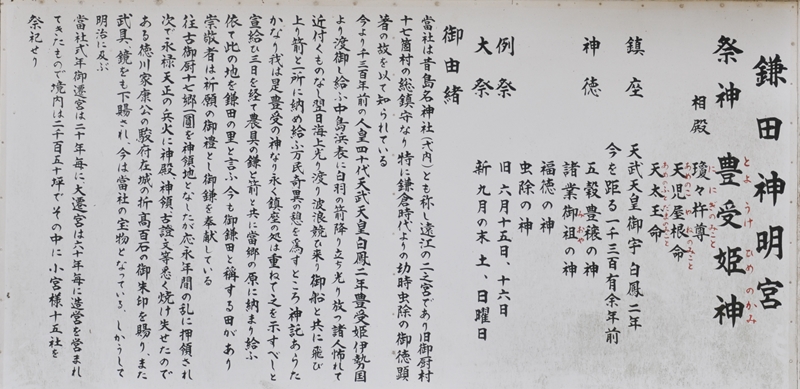 鎌田神明宮
祭神 豊受姫神
とようけひめのかみ
相殿
瓊々杵尊
ににぎのみこと
天児屋根命
天太玉命
鎮座
天武天皇御宇 白鳳二年
今を距る一千三百有余年前
神徳
五穀豊穣の神
諸業御祖の神
みおや
福徳の神
虫除の神
例祭 旧 六月十五日、十六日
大祭 新 九月の末 土、日曜日
御由緒
當社は昔島名神社(式内)とも称し遠江の二之宮であり旧御厨村
十七箇村の総鎮守なり 特に鎌倉時代よりの幼時虫除の御徳顕
著の故を以て知られている
今より千三百年前の人皇四十代天武天皇白鳳二年豊受姫伊勢国
より渡御し給ふ中島浜表に白羽の箭降り立ち光り放つ諸人怖れて
近付くものなし翌日海上光り渡り波浪競ひ来り御船と共に飛び
上り箭と一所に納め給ふ万民奇異の憩を為すところ神記あらた
かなり我は是豊受の神なり永く鎮座の処は重ねて之を示すべしと
宣給ひ三日を経て農具の鎌と箭と共に當郷の原に納まり給ふ
依て此の地を鎌田の里と言ふ 今も御鎌田と稱する田があり
崇敬者は祈願の御禮とし御鎌を奉献している
往古御厨十七郷一圓を神領地となしたが応永年間の乱に押領され
次で永禄 天正の兵火に神殿、神領古證文等悉く焼け失せたので
ある徳川家康公の駿府在城の折高百石の御朱印を賜り、また
武具、鏡をも下賜され、今は當社の宝物となっている、しかうして
明治に及ぶ
當社式年御遷宮は二十年毎に大遷宮は六十年毎に造宮を営まれ
てきたもので境内は二千百五十坪でその中に小宮様十五社を
祭祀せり